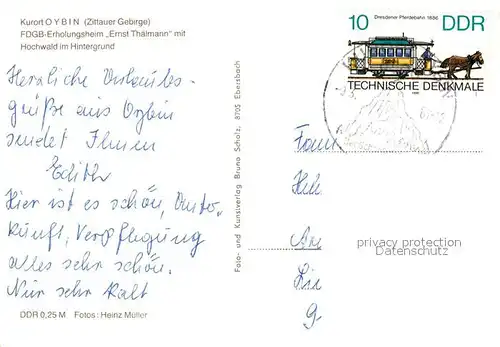 Kurort OYBIN (Zittauer Gebirge)
FDGB-Erholungsheim „Ernst Thälmann" mit
Hochwald im Hintergrund
Herzliche Urlaubs-
grüße aus Oybin
sendet Ihnen
Edith
Hier ist es schön, Unter-
kunft, Verpflegung
alles sehr schön.
Nur sehr kalt
DDR 0,25 M Fotos: Heinz Müller
Foto- und Kunstverlag Bruno Scholz, 8705 Ebersbach
Dresdener Pferdebahn 1886
10 DDR
TECHNISCHE DENKMALE
Fam
privacy protection
Datenschutz